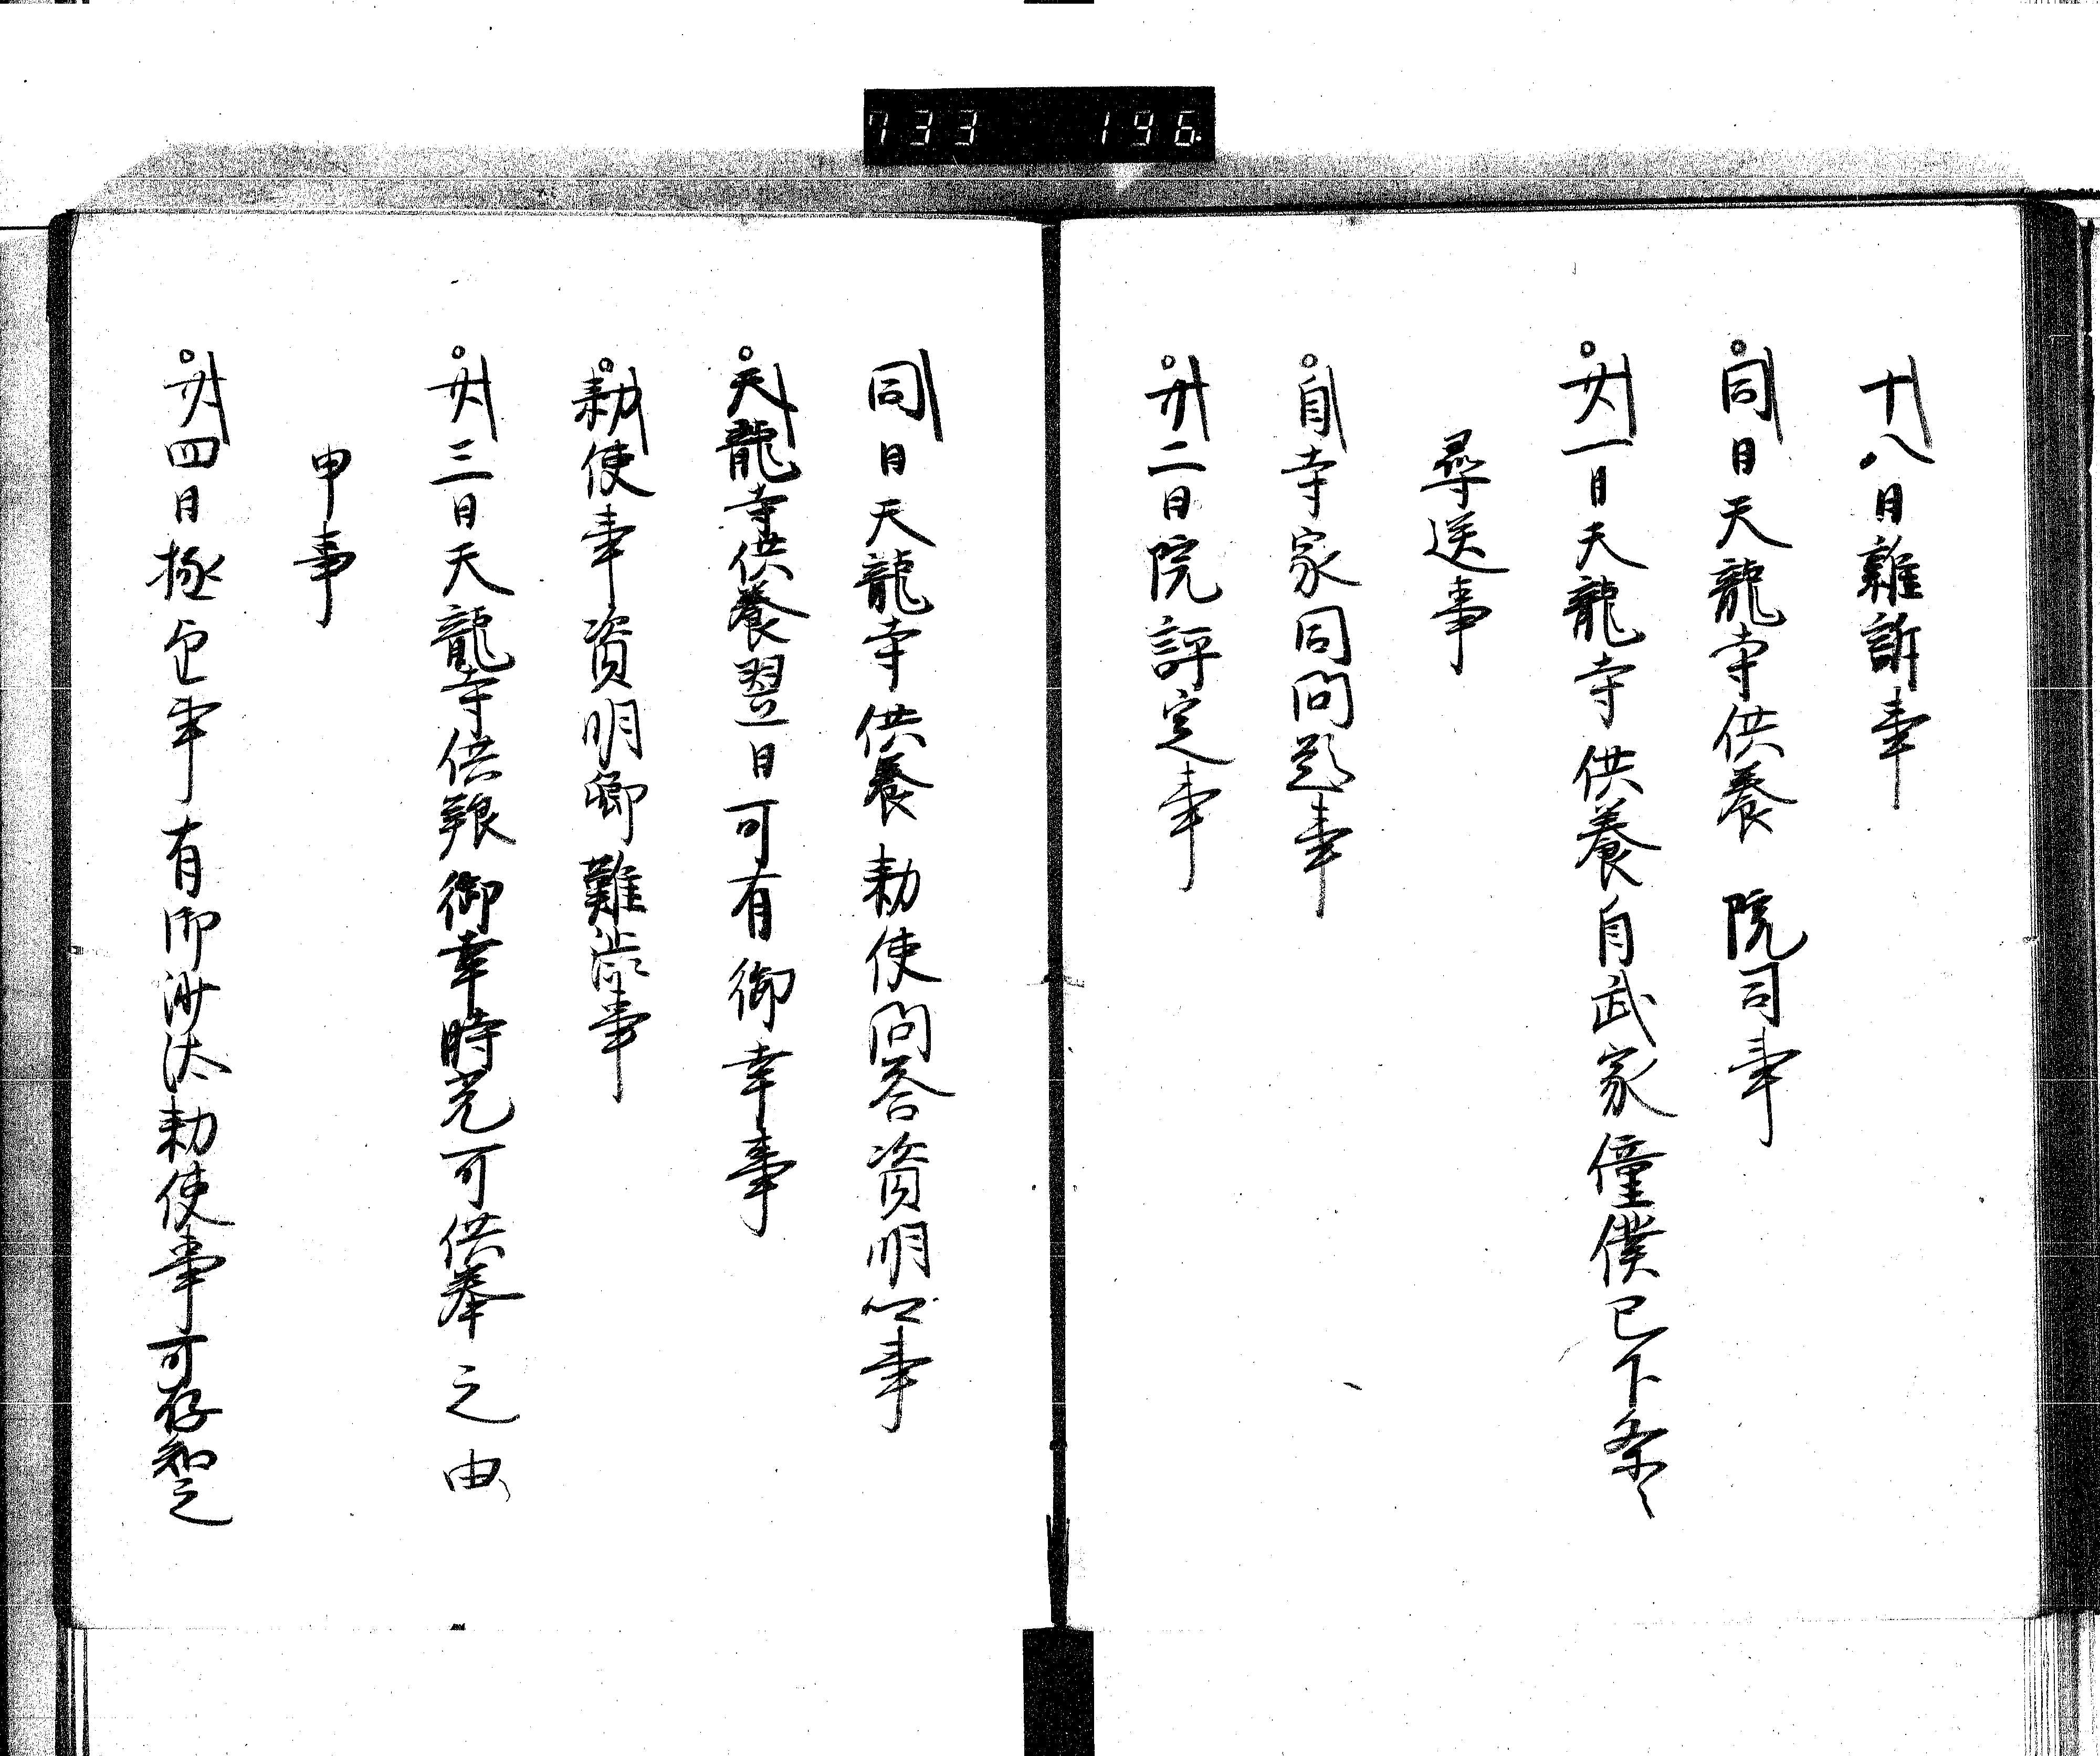 733 196
十八日雜訴事
同日天龍寺供養 院司事
廿一日天龍寺供養自武家僮僕已下条々
尋送事
自寺家同問題事
廿二日院評定事
同日天龍寺供養勅使問答資明卿事
天龍寺供養翌日可有御幸事
勅使事資明卿難澁事
廿三日天龍寺供養御幸時光可供奉之由
申事
廿四日 事有御沙汰勅使事可存知之